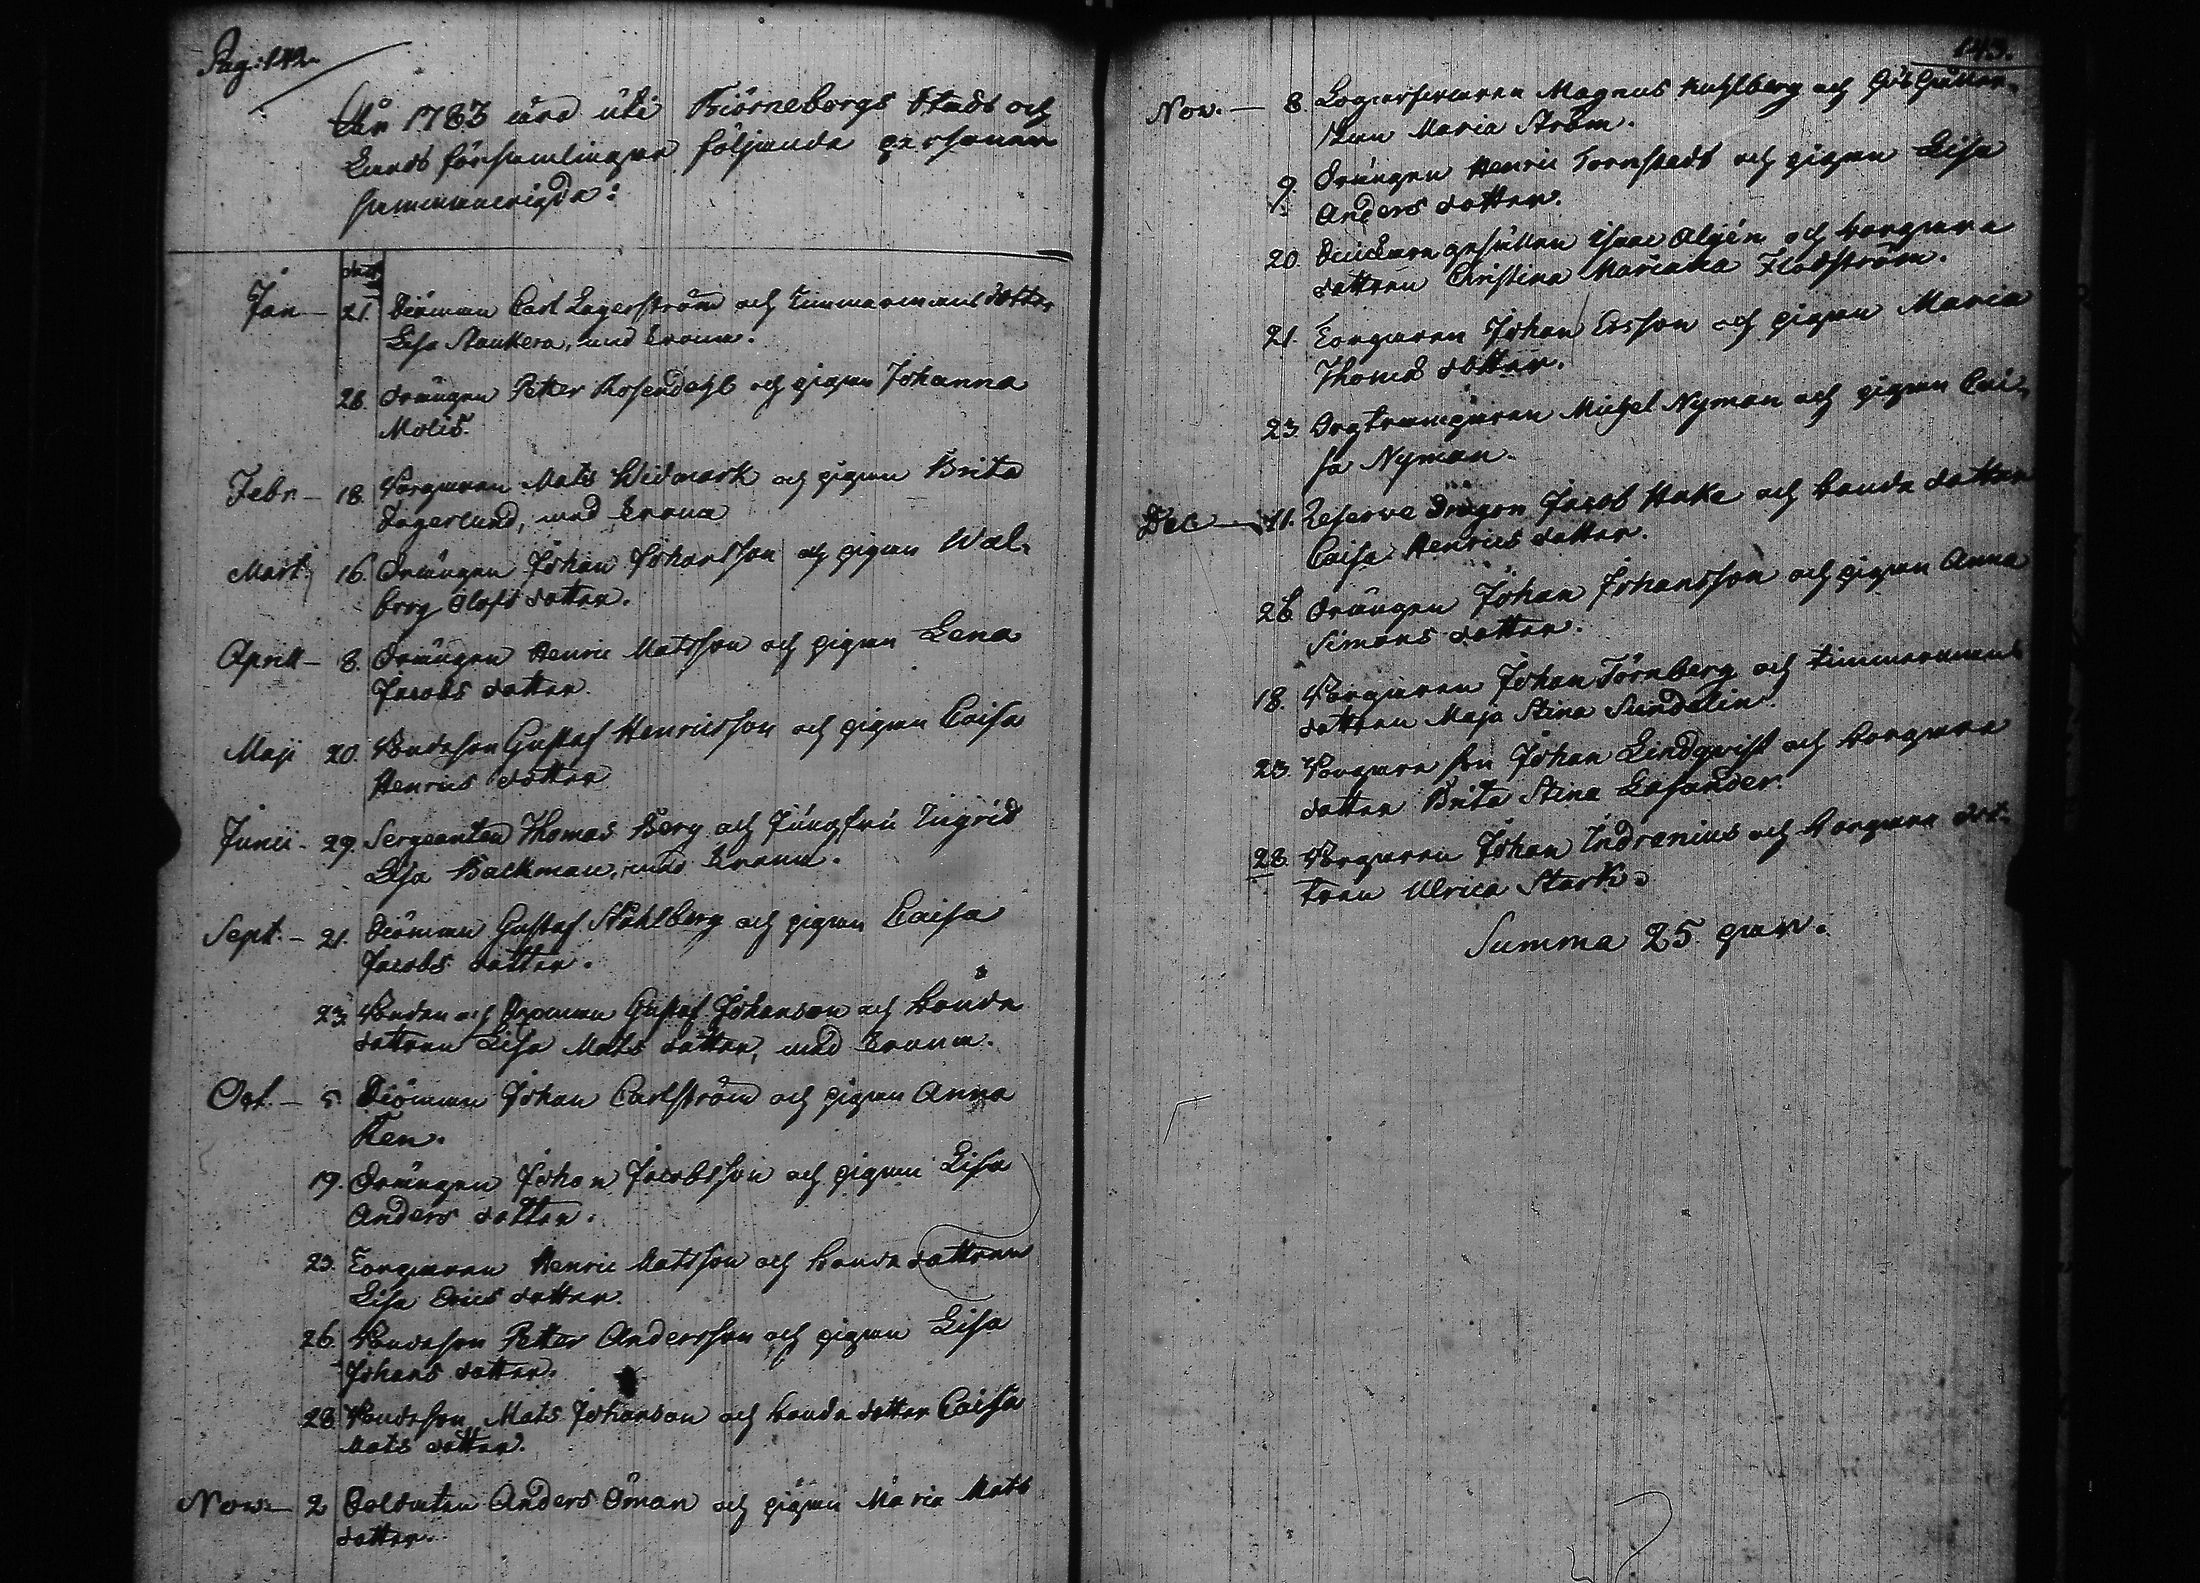 Pag: 142.
År 1783 äro uti Biörneborgs Stads och
Lands församlingar följande personer
sammanvigde:
Jan — 21. Siöman Carl Lagerström och timmermans dotter
Lisa Stenkera, med krona.
28. Drängen Petter Rosendahl och pigan Johanna
Molis.
Febr — 18. Borgaren Mats Widmark och pigan Brita
Fagerlund, med krona
Mart: 16. Drängen Johan Johansson och pigan Wal-
borg Olofs dotter.
April — 8. Drängen Henric Matsson och pigan Lena
Jacobs dotter.
Maji 20. Bondeson Gustaf Henricsson och pigan Caisa
Henrics dotter
Junii - 29. Sergeanten Thomas Berg och Jungfru Ingrid
Lisa Backman, med krona.
Sept. — 21. Siöman Gustaf Ståhlberg och pigan Caisa
Jacobs dotter.
23. Bonden och Gustaf Johansson och bonde
dottren Lisa Mats dotter, med krona.
Oct. — 5. Siöman Johan Carlström och pigan Anna
Ren.
19. Drängen Johan Jacobsson och pigan Lisa
Anders dotter.
23. Torparen Henric Matsson och bonde dottren
Lisa Erics dotter.
26. Bondeson Petter Andersson och pigan Lisa
Johans dotter.
28. Bondeson Mats Johanson och bonde dotter Caisa
Mats dotter.
Nov: — 2 Soldaten Anders Öman och pigan Maria Mats
dotter.
143.
Nov. — 8 Magnus Kuhlberg och
Maria Ström.
9. Drängen Henric Tornstedt och pigan Lisa
Anders dotter.
20. Snickare gesällen Isaac Algén och borgare
dottren Christina Mariana Flodström.
21. Torparen Johan Ersson och pigan Maria
Thomas dotter.
23. Michel Nyman och pigan Cai-
sa Nyman.
Dec — 11. Reserve Dragon Jacob Hake och bonde dotter
Caisa Henrics dotter.
26 Drängen Johan Johansson och pigan Anna
Simons dotter.
18. Borgaren Johan Törnberg och timmermans
dottren Maja Stina Sundelin.
23. Borgare son Johan Lindqvist och borgare
dotter Brita Stina Gasander.
28. Borgaren Johan Indrenius och borgare dot-
tren Ulrica Stark.
Summa 25 par.